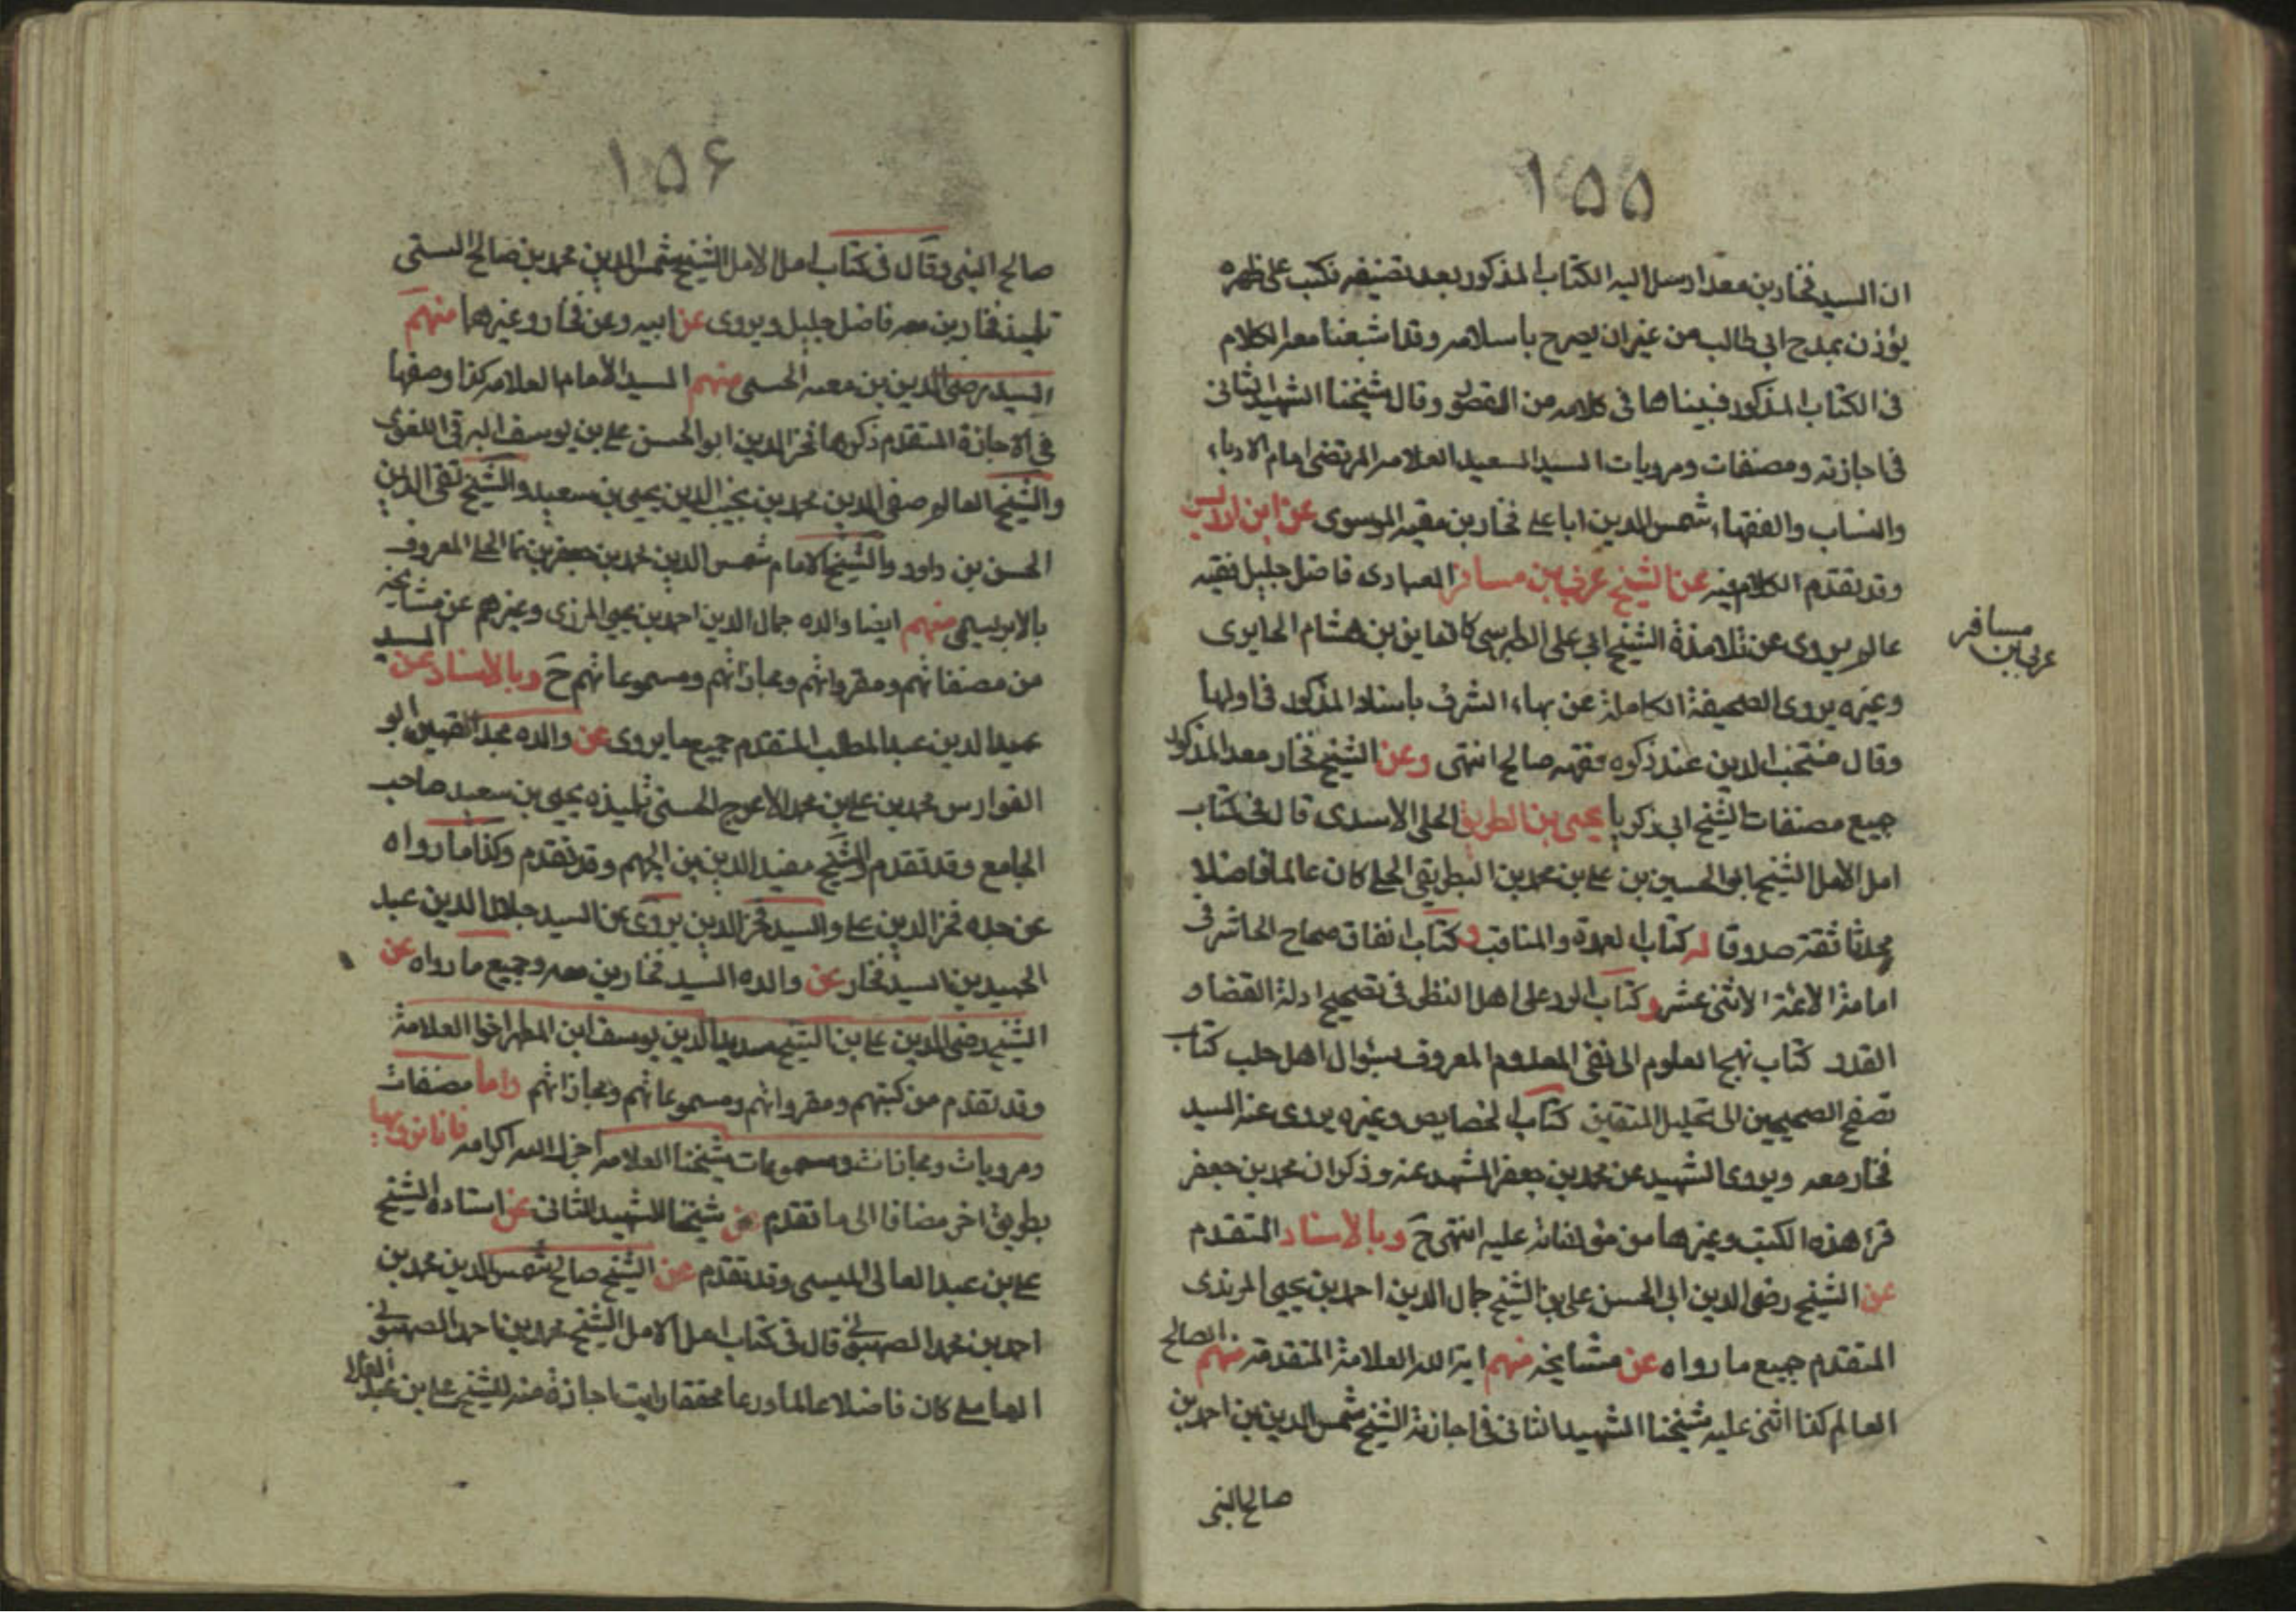 ١۵۵
ان السيد فخار بن معد ارسل اليه الكتاب المذكور بعد تصنيفه فكتب على ظهره
يؤذن بمدح ابي طالب من غير ان يصرح باسلامه وقد اشبعنا معه الكلام
فى الكتاب المذكور فبيناها فى كلامه من القصور وقال شيخنا الشهيد الثانى
فى اجازته ومصنفات ومرويات السيد السعيد العلامه المرتضى امام الادباء
والنساب والفقهاء شمس الدين ابا على فخار بن معد الموسوى عن ابن ادريس
وقد تقدم الكلام فيه عن الشيخ عربى بن مسافر العبادى فاضل جليل فقيه
عالم يروى عن تلامذة الشيخ ابى على الطبرسى كالياس بن هشام الحايرى
مسافر
عربى بن
وغيره يروى الصحيفة الكاملة عن بهاء الشرف باسناد المذكور فى اولها
وقال منتجب الدين عند ذكره فقيه صالح انتهى وعن الشيخ فخار معد المذكور
جميع مصنفات الشيخ ابى زكريا يحيى بن البطريق الحلى الاسدى قال فى كتاب
امل الامل الشيخ ابو الحسين بن على بن محمد بن البطريق الحلى كان عالما فاضلا
محدثا ثقة صدوقا له كتاب العمدة والمناقب وكتاب اتفاق صحاح الاثر فى
امامة الائمة الاثنى عشر وكتاب الرد على اهل النظر فى تصحيح ادلة القضا و
القدر كتاب نهج العلوم الى نفى المعدوم المعروف بسؤال اهل حلب كتاب
تصفح الصحيحين الى تحليل المتعتين كتاب الخصايص وغيره يروى عنه السيد
فخار معد ويروى الشهيد عن محمد بن جعفر المشهد عنه وذكر ان محمد بن جعفر
قرا هذه الكتب وغيرها من مؤلفاته عليه انتهى ح وبالاسناد المتقدم
عن الشيخ رضى الدين ابى الحسن على بن الشيخ جمال الدين احمد بن يحيى المزيدى
المتقدم جميع ما رواه عن مشايخه منهم اية الله العلامة المتقدمة منهم الصالح
العالم كذا اثنى عليه شيخنا الشهيد الثانى فى اجازته الشيخ شمس الدين بن احمد بن
صالح البنى
١۵۶
صالح البنى وقال فى كتاب امل الامل الشيخ شمس الدين محمد بن صالح السيبى
تلميذ فخار بن معد فاضل جليل ويروى عن ابيه وعن فخار وغيرها منهم
السيد رضى الدين بن معيه الحسنى منهم السيد الامام العلامه كذا وصفها
فى الاجازة المتقدم ذكرها فخر الدين ابو الحسن على بن يوسف البرقى اللغوى
والشيخ العالم صفى الدين محمد بن نجيب الدين يحيى بن سعيد والشيخ تقى الدين
الحسن بن داود والشيخ الامام شمس الدين محمد بن جعفر بن نما الحلى المعروف
بالابريسمى منهم ايضا والده جمال الدين احمد بن يحيى المزيدى وغيرهم عن مشايخه
من مصنفاتهم ومقرواتهم ومجازاتهم ومسموعاتهم ح وبالاسناد عن السيد
عميد الدين عبد المطلب المتقدم جميع ما يروى عن والده مجد الفقهين ابو
الفوارس محمد بن على بن محمد الاعرج الحسنى تلميذه يحيى بن سعيد صاحب
الجامع وقد تقدم والشيخ مفيد الدين بن الجهم وقد تقدم وكذا ما رواه
عن جده فخر الدين على والسيد فخر الدين يروى عن السيد جلال الدين عبد
الحميد بن السيد فخار عن والده السيد فخار بن معد وجميع ما رواه عن
الشيخ رضى الدين على بن الشيخ سديد الدين يوسف ابن المطهر اخو العلامة
وقد تقدم من كتبهم ومقرواتهم ومسموعاتهم ومجازاتهم واما مصنفات
ومرويات ومجازات ومسموعات شيخنا العلامه اجزل الله اكرامه فانا نرويها
بطريق اخر مضافا الى ما تقدم عن شيخنا الشهيد الثانى عن استاده الشيخ
على بن عبد العالى الميسى وقد تقدم عن الشيخ صالح شمس الدين محمد بن
احمد بن محمد الصهيونى قال فى كتاب امل الامل الشيخ محمد بن احمد الصهيونى
العاملى كان فاضلا عالما ورعا محققا رايت اجازة منه للشيخ على بن عبد العالى